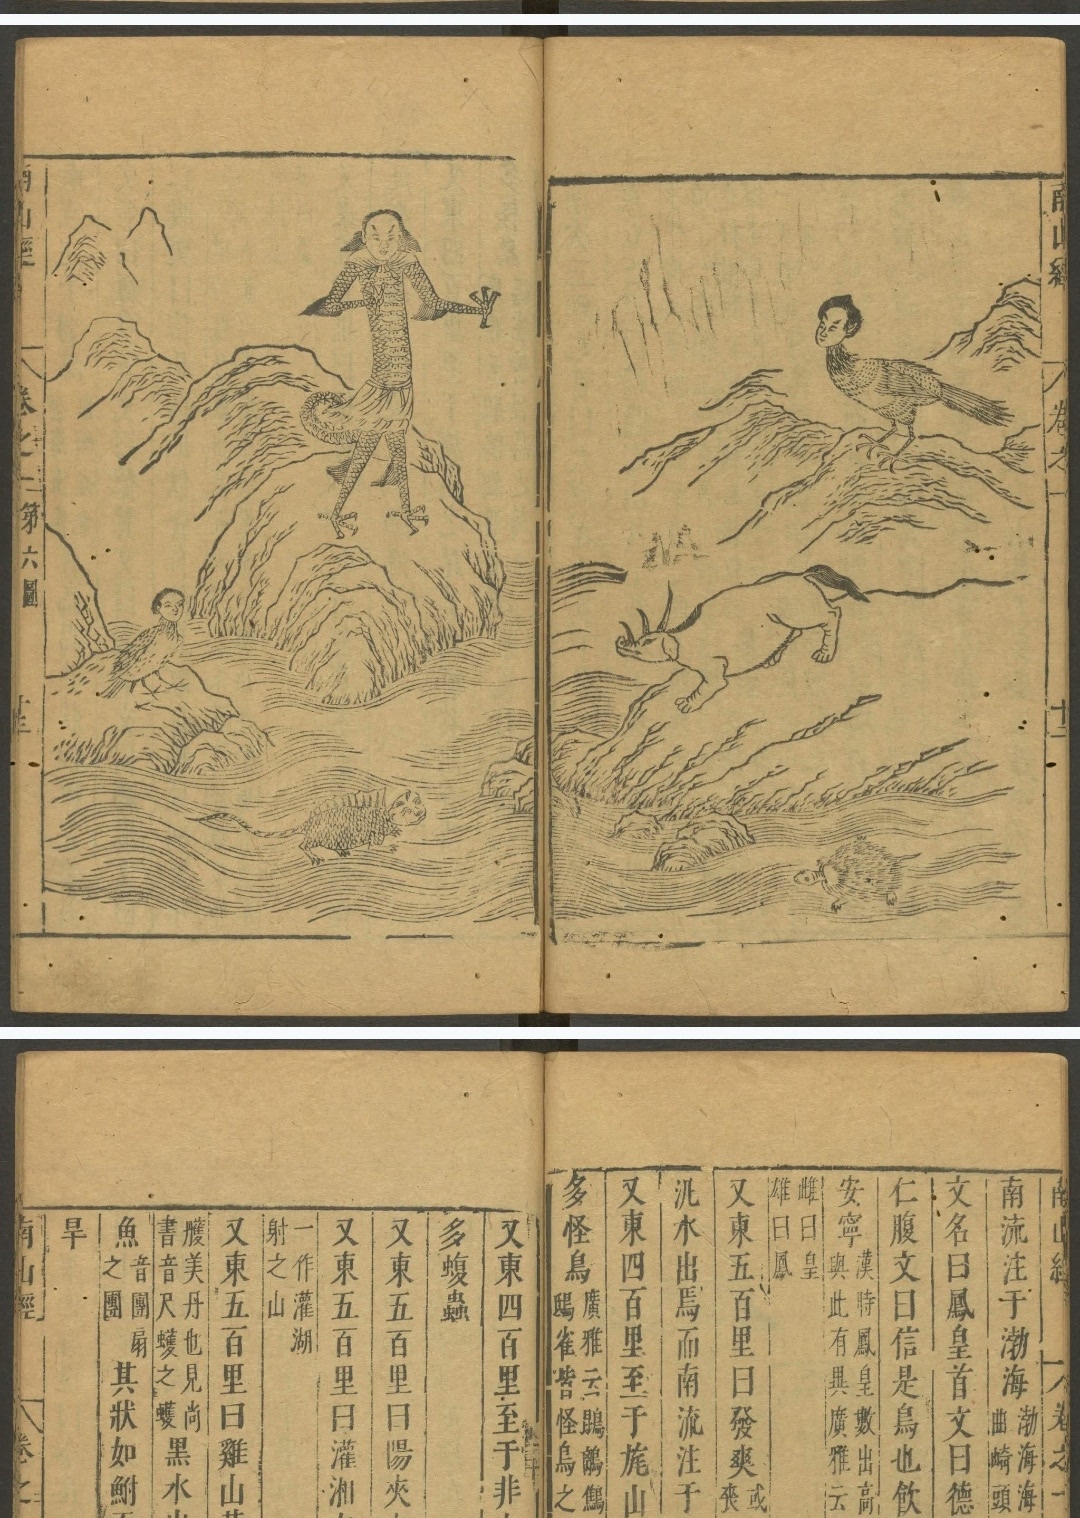 南山經
卷之一
南山經
卷之一第六圖
南山經
卷之一
南流注于渤海渤海海
曲崎頭
文名曰鳳皇首文曰德
仁腹文曰信是鳥也飲
安寧漢時鳳皇數出高
與此有異廣雅云
雌曰皇
雄曰鳳
又東五百里曰發爽或
喪
汎水出焉而南流注于
又東四百里至于旄山
多怪鳥廣雅云鶋鶋鷦
鴟雀皆怪鳥之
又東四百里至于非
多蝮蟲
又東五百里曰陽夾
又東五百里曰灌湘
一作灌湖
射之山
又東五百里曰雞山其
雘美丹也見尚
書音尺蠖之蠖黑水出
魚音團扇
之團其狀如鮒
旱
南山經
卷之一